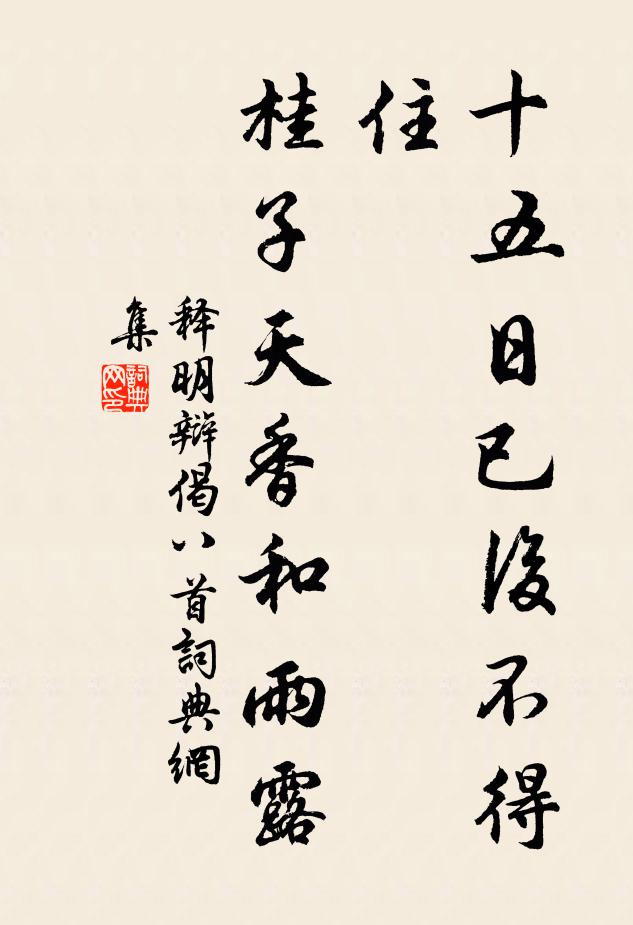 十五日已後不得
住
桂子天香和雨露
释明辯偈八首詞典網
集
詞典
网印